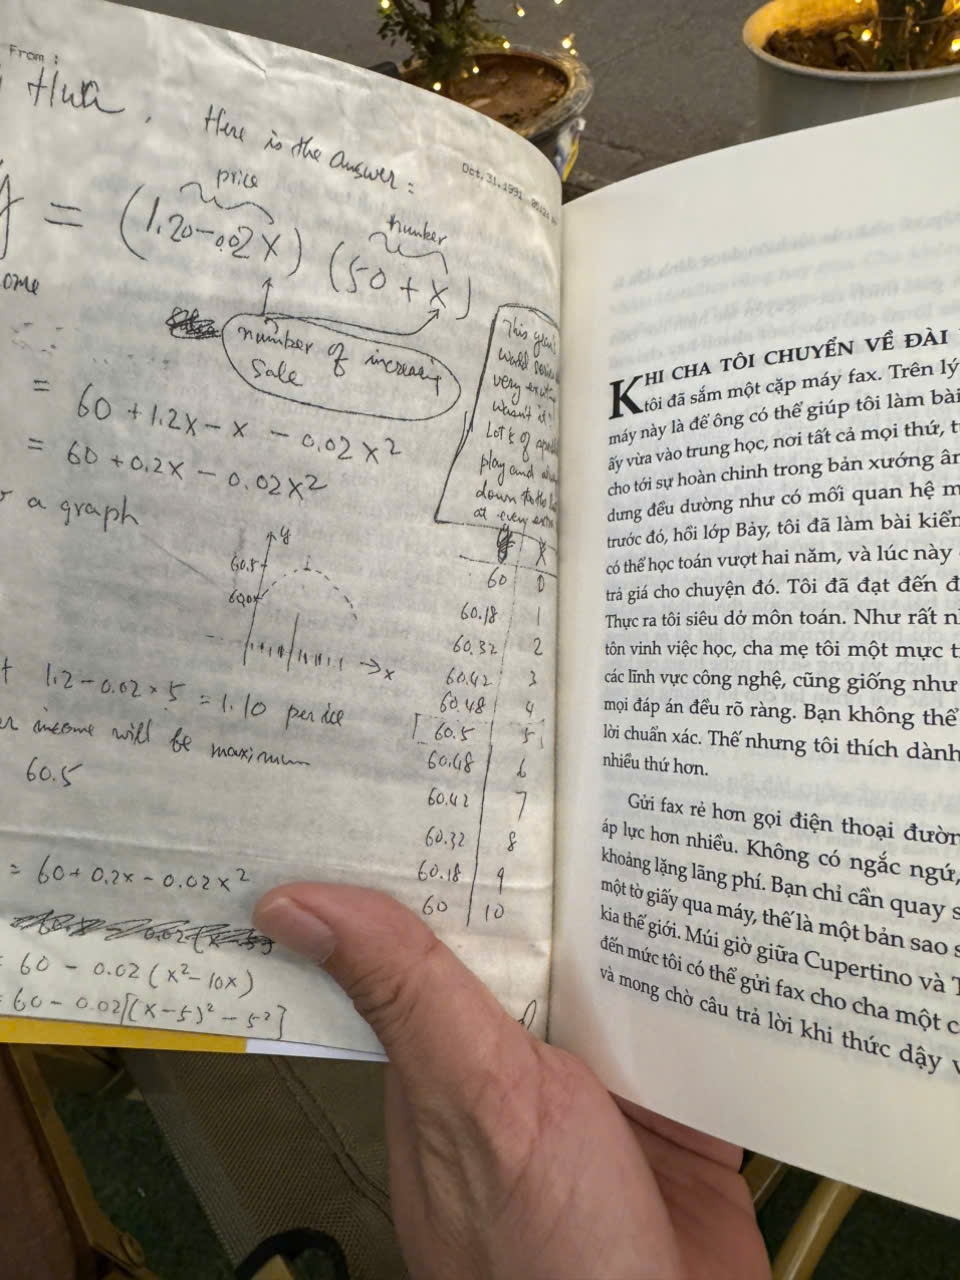 From :
Hua, Here is the answer :
Oct. 31. 1991
price
number
= (1.20-0.02X) (50 + X)
ome
number of increasing
Sale
This year's
world series
very exciting
wasn't it?
Lots of
play and
down to the
at every extra
= 60 + 1.2X - X - 0.02X²
= 60 + 0.2X - 0.02X²
a graph
y
60.5
60.0
x
y X
60 0
60.18 1
60.32 2
60.42 3
60.48 4
60.5 5
60.48 6
60.42 7
60.32 8
60.18 9
60 10
1.2 - 0.02 × 5 = 1.10 per ice
income will be maximum
60.5
= 60 + 0.2x - 0.02x²
= 60 - 0.02 (x² - 10x)
= 60 - 0.02[(x-5)² - 5²]
KHI CHA TÔI CHUYỂN VỀ ĐÀI
tôi đã sắm một cặp máy fax. Trên lý
máy này là để ông có thể giúp tôi làm bài
ấy vừa vào trung học, nơi tất cả mọi thứ, t
cho tới sự hoàn chỉnh trong bản xướng âm
dưng đều dường như có mối quan hệ m
trước đó, hồi lớp Bảy, tôi đã làm bài kiểm
có thể học toán vượt hai năm, và lúc này
trả giá cho chuyện đó. Tôi đã đạt đến đ
Thực ra tôi siêu dở môn toán. Như rất nh
tôn vinh việc học, cha mẹ tôi một mực t
các lĩnh vực công nghệ, cũng giống như
mọi đáp án đều rõ ràng. Bạn không thể
lời chuẩn xác. Thế nhưng tôi thích dành
nhiều thứ hơn.
Gửi fax rẻ hơn gọi điện thoại đườn
áp lực hơn nhiều. Không có ngắc ngứ,
khoảng lặng lãng phí. Bạn chỉ cần quay s
một tờ giấy qua máy, thế là một bản sao s
kia thế giới. Múi giờ giữa Cupertino và T
đến mức tôi có thể gửi fax cho cha một c
và mong chờ câu trả lời khi thức dậy v